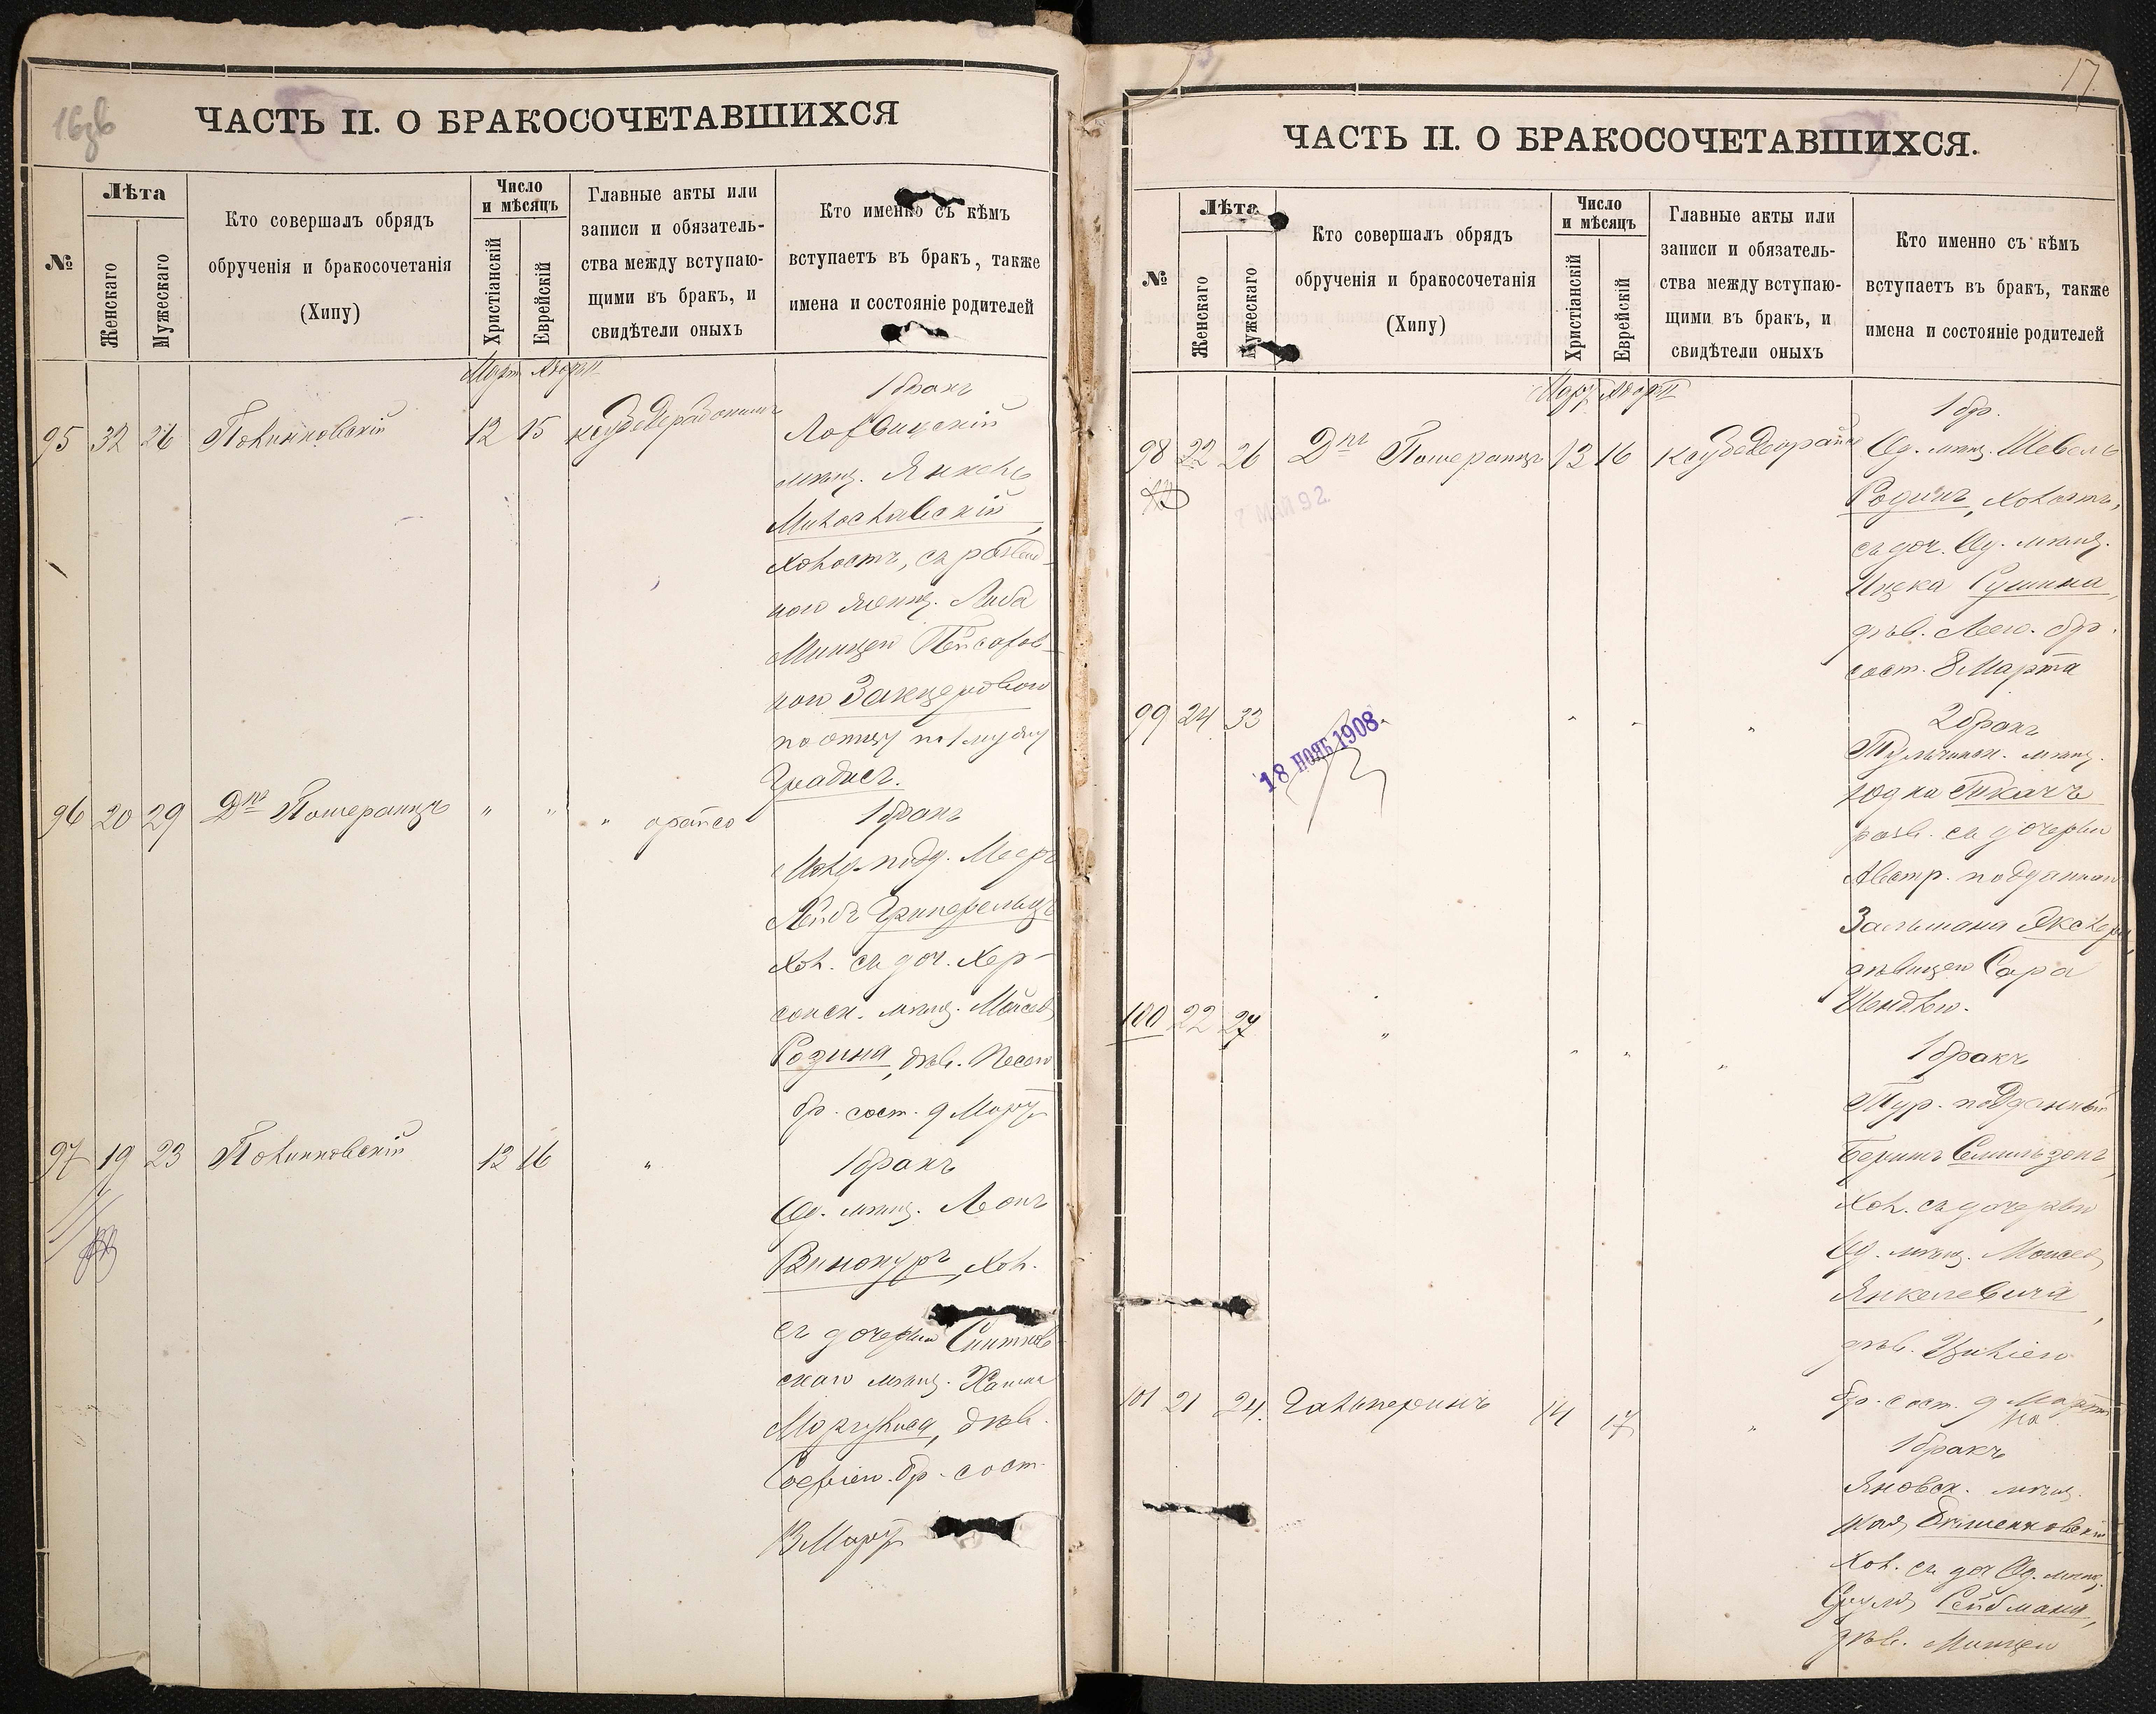 ЧАСТЬ II. О БРАКОСОЧЕТАВШИХСЯ
№
Лѣта
Женскаго
Мужескаго
Кто совершалъ обрядъ
обрученія и бракосочетанія
(Хипу)
Число
и мѣсяцъ
Христіанскій
Еврейскій
Главные акты или
записи и обязатель-
ства между вступаю-
щими въ бракъ, и
свидѣтели оныхъ
Кто именно съ кѣмъ
вступаетъ въ бракъ, также
имена и состояніе родителей
95 32 26 Полинковскій 12 15
1 бракъ
мѣщ. Янкель
Милославскій,
холостъ, съ развед-
ною женщ.
Минцею Пейсахов-
ною
по отцу по 1 мужу
Градисъ.
96 20 29 Дръ Померанцъ " " "
1 бракъ
подд. Мееръ
Лейбъ Гринфельдъ
хол. съ доч. Хер-
сонск. мѣщ. Мойсея
Розина, дѣв. Песею
бр. сост. 9 Март
97 19 23 Полинковскій 13 16 "
1 бракъ
Од. мѣщ. Леонъ
Винокуръ, хол.
съ дочерью
скаго мѣщ. Хаима
Маргулиса, дѣв.
Софіею. бр. сост.
Март
ЧАСТЬ II. О БРАКОСОЧЕТАВШИХСЯ.
17.
№
Лѣта
Женскаго
Мужескаго
Кто совершалъ обрядъ
обрученія и бракосочетанія
(Хипу)
Число
и мѣсяцъ
Христіанскій
Еврейскій
Главные акты или
записи и обязатель-
ства между вступаю-
щими въ бракъ, и
свидѣтели оныхъ
Кто именно съ кѣмъ
вступаетъ въ бракъ, также
имена и состояніе родителей
98 22 26 Дръ Померанцъ 13 16
1 бр.
Од. мѣщ. Шевель
Родинъ, холостъ,
съ доч. Од. мѣщ.
Ицека
дѣв. Леею. бр.
сост. 8 Марта
7 МАЙ 92
99 24 33 " " "
18 НОЯБ 1908
2 бракъ
Тульчинск. мѣщ.
Юдка Ткачъ
разв. съ дочерью
Австр. подданнаго
Зальмана
дѣвицею Сара
Шендлею.
100 22 27 " " " "
1 бракъ
Тур. подданный
Беришъ
хол. съ дочерью
Од. мѣщ. Моисея
Янкелевича,
дѣв. Цилею
бр. сост. 9 Марта
101 21 24 Гальперинъ 14 17 "
1 бракъ
Яновск. мѣщ.
хол. съ доч Од. мѣщ.
Сруля Рейдмана,
дѣв. Минцею